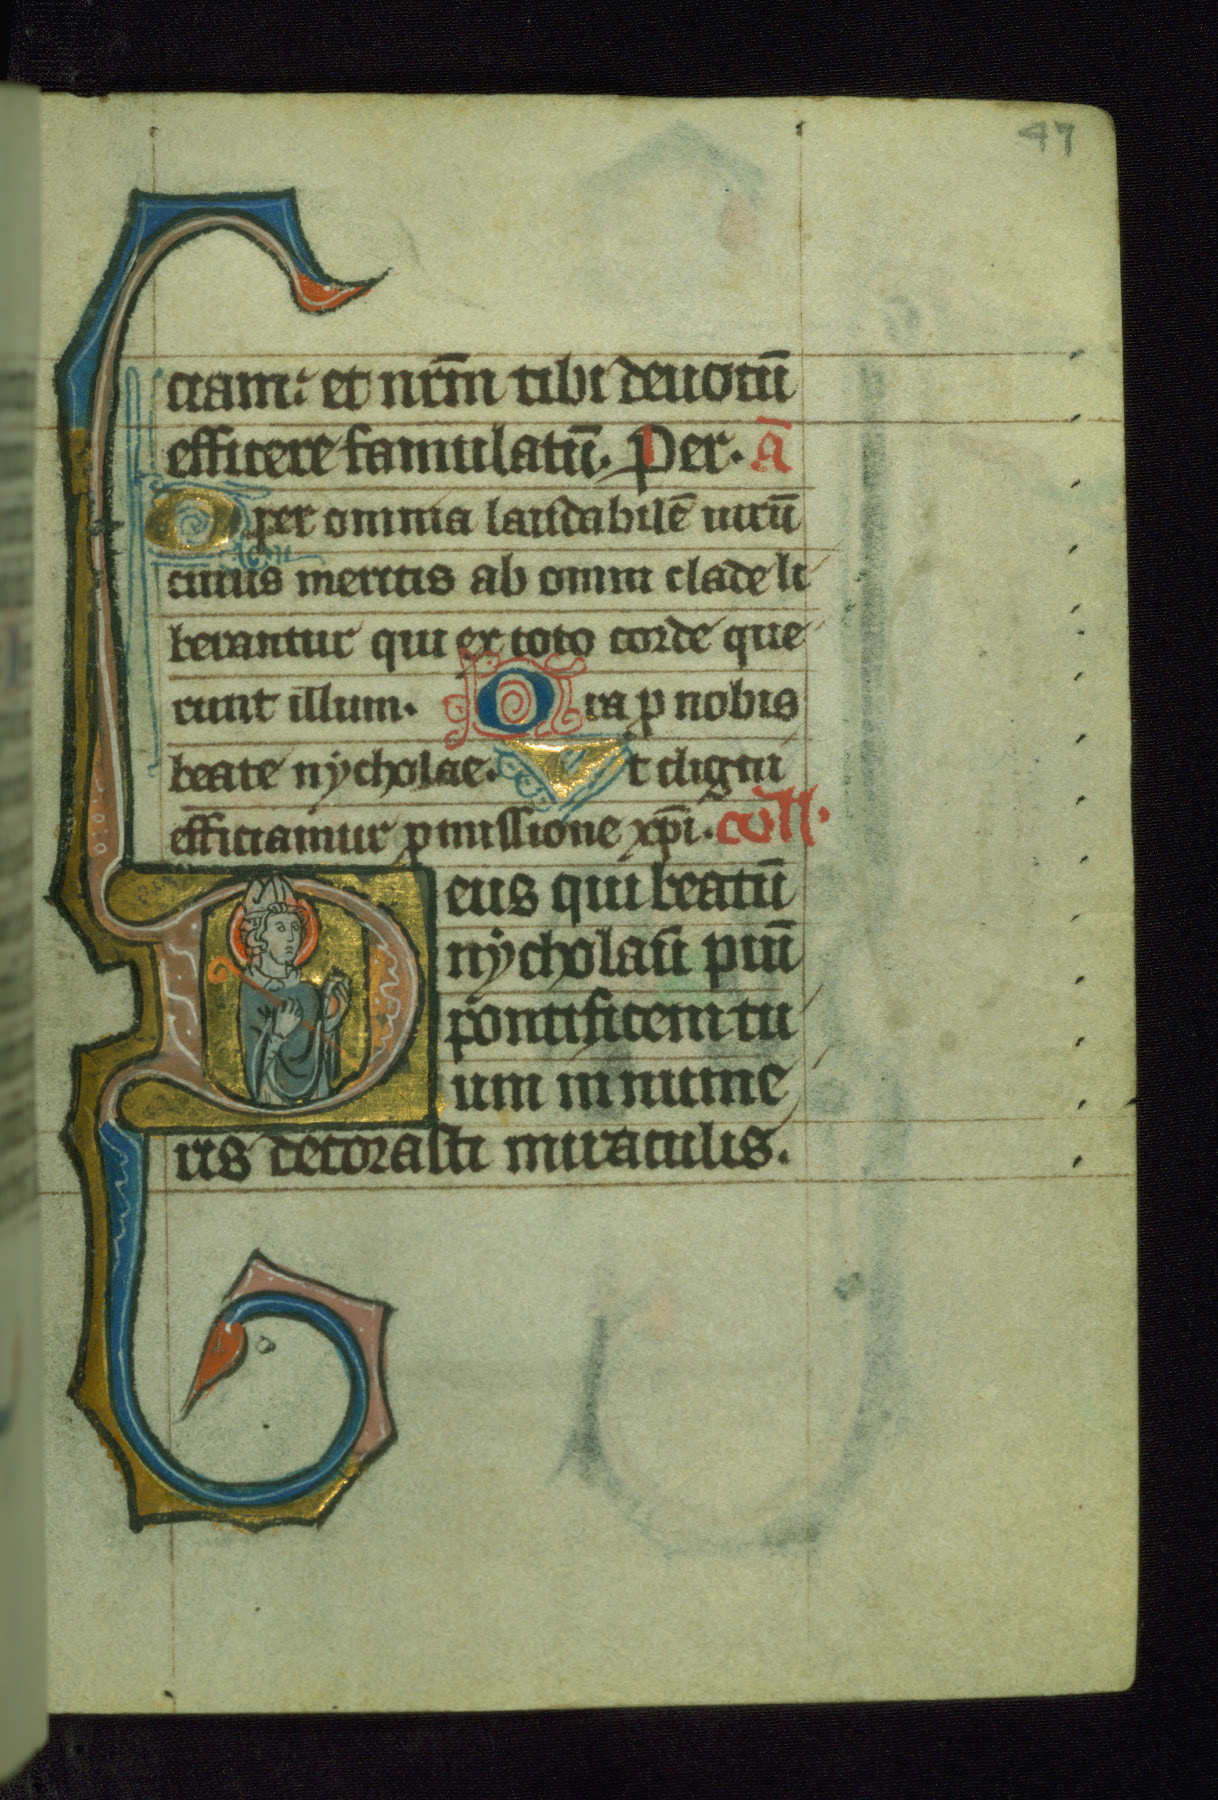 47
ciam: et nr̄m tibi deuotū
efficere famulatū. Per. ā
O per omnia laudabilē uirū
cuius meritis ab omni clade li
berantur qui ex toto corde que
runt illum. Ora p nobis
beate nycholae. Vt digni
efficiamur pmissione xp̄i. coll.
Deus qui beatū
nycholaū piū
pontificem tu
um innume
ris decorasti miraculis.